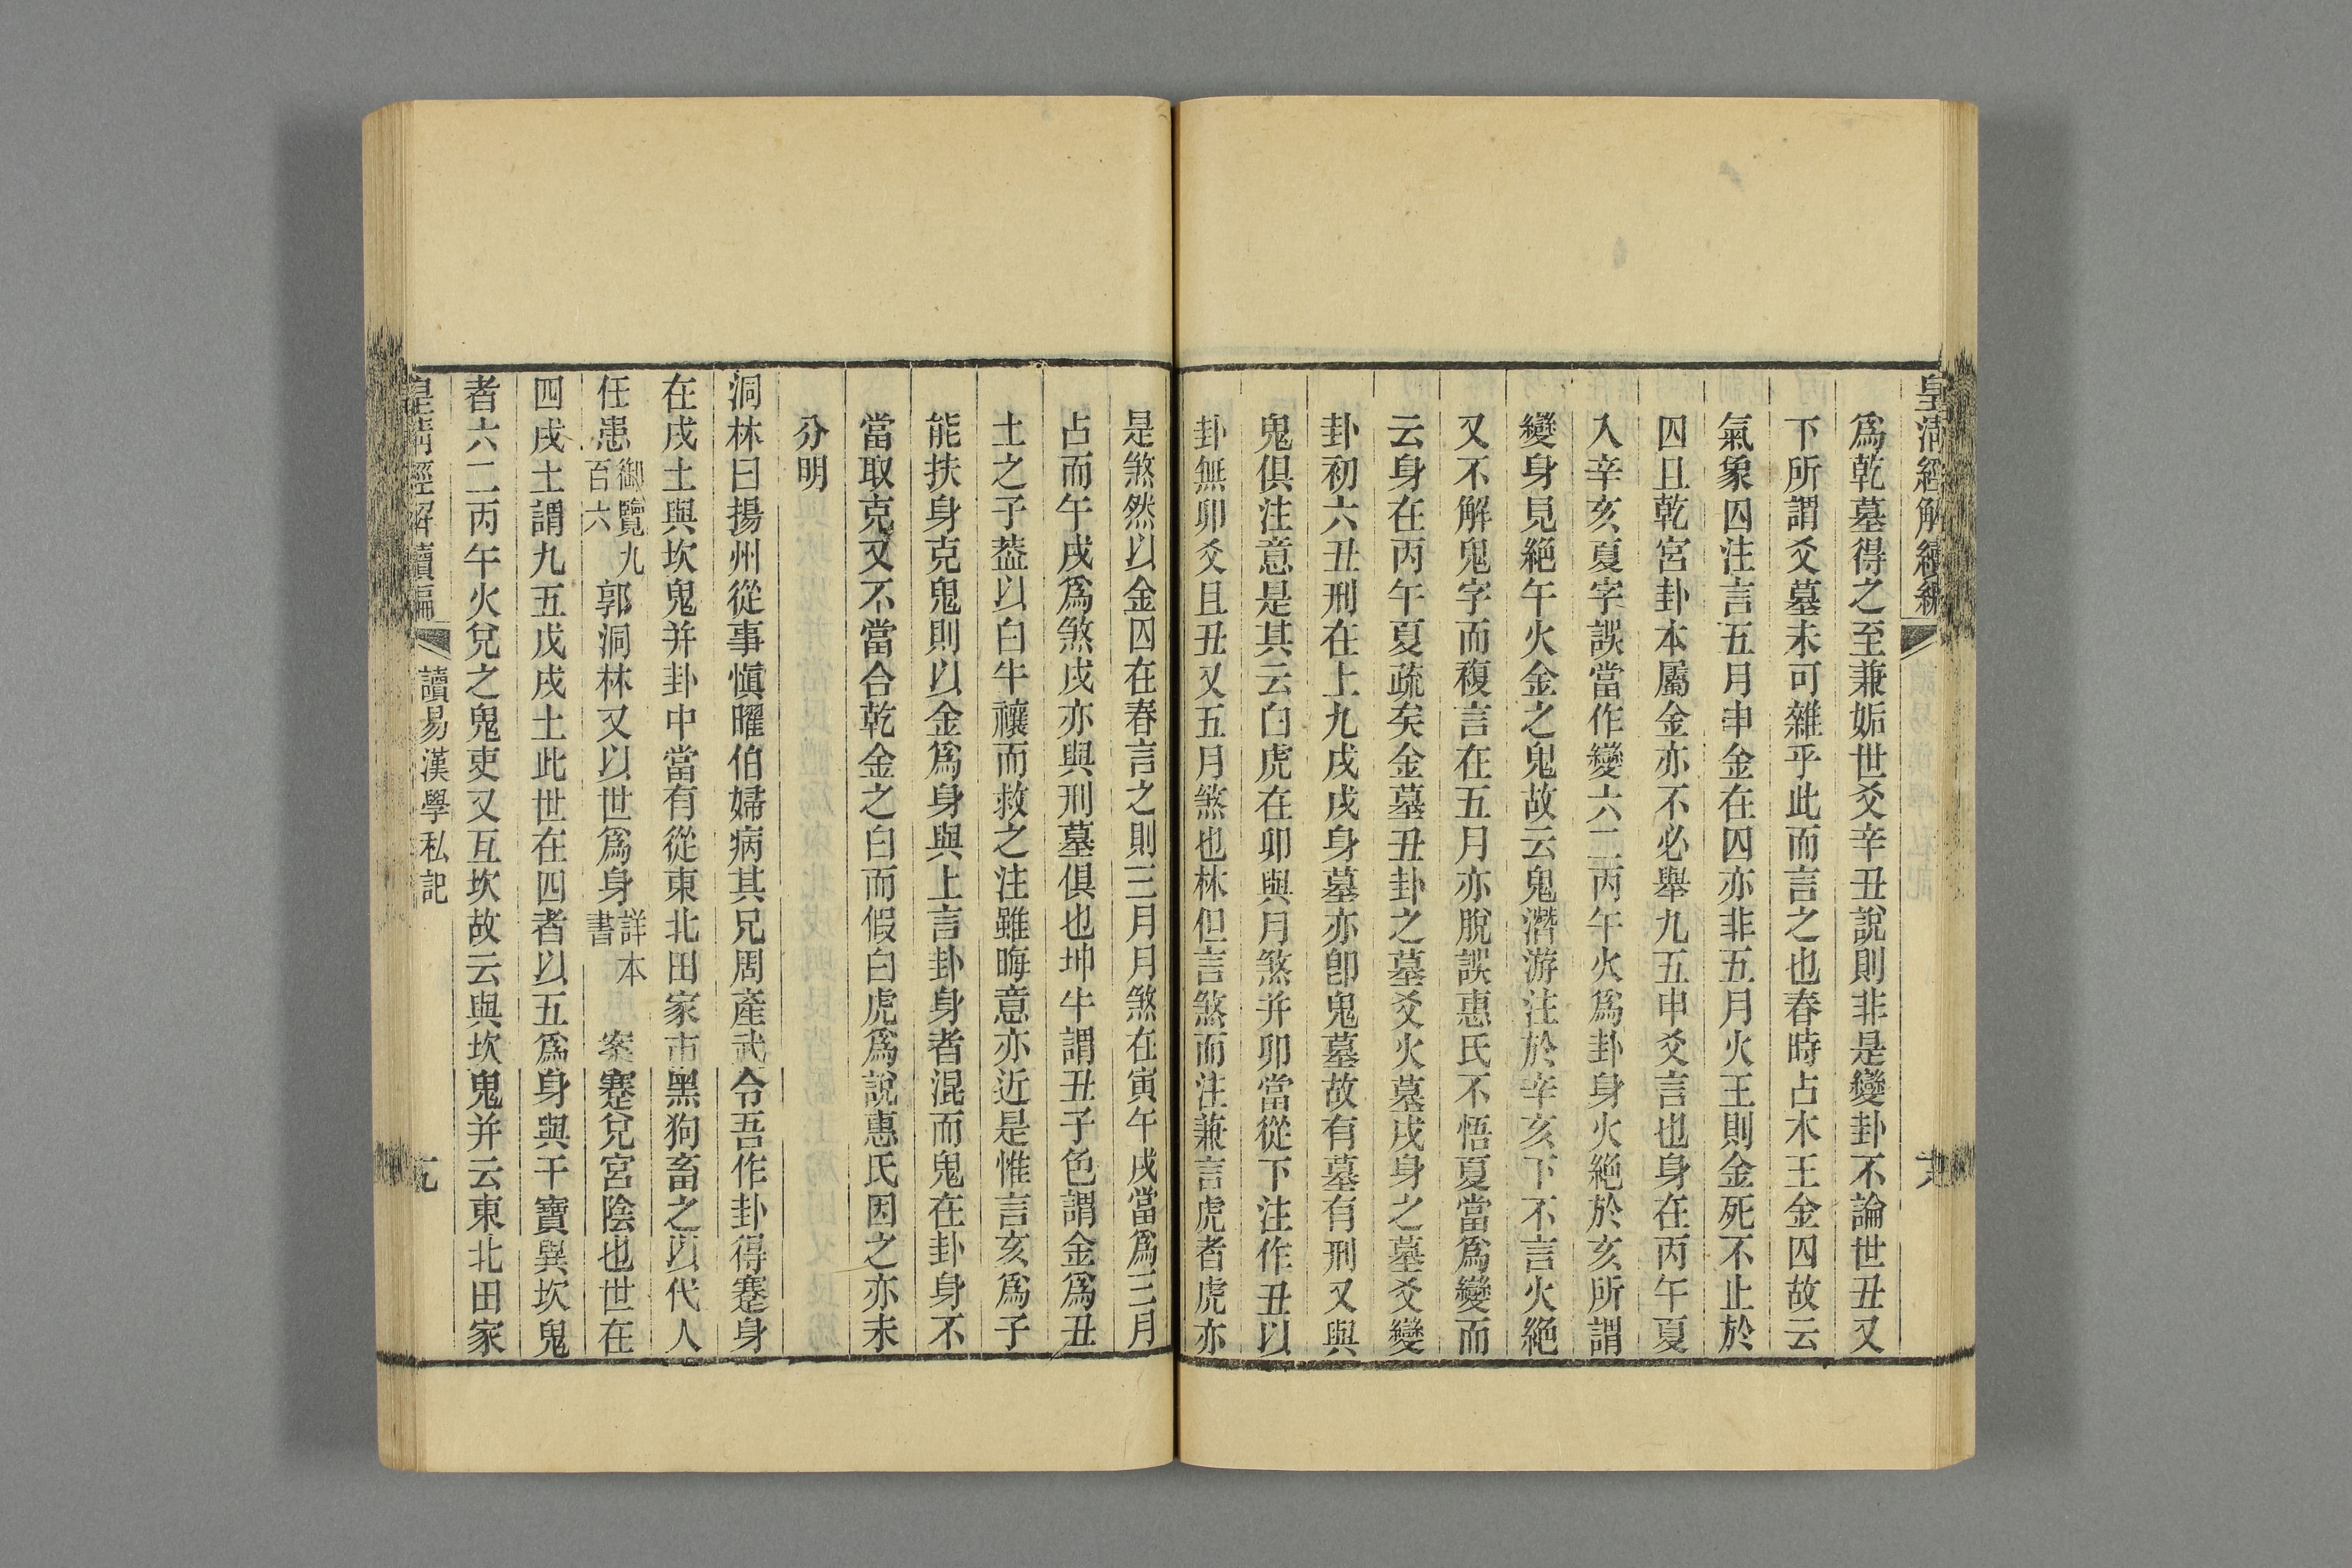 皇清經解續編
爲乾墓得之至兼姤世爻辛丑說則非是變卦不論世丑又
下所謂爻墓未可雜乎此而言之也春時占木王金囚故云
氣象囚注言五月申金在囚亦非五月火王則金死不止於
囚且乾宮卦本屬金亦不必舉九五申爻言也身在丙午夏
入辛亥夏字誤當作變六二丙午火爲卦身火絕於亥所謂
變身見絕午火金之鬼故云鬼潛游注於辛亥下不言火絕
又不解鬼字而複言在五月亦脫誤惠氏不悟夏當爲變而
云身在丙午夏疏矣金墓丑卦之墓爻火墓戌身之墓爻變
卦初六丑刑在上九戌戌身墓亦卽鬼墓故有墓有刑又與
鬼俱注意是其云白虎在卯與月煞并卯當從下注作丑以
卦無卯爻且丑又五月煞也林但言煞而注兼言虎者虎亦
是煞然以金囚在春言之則三月月煞在寅午戌當爲三月
占而午戌爲煞戌亦與刑墓俱也坤牛謂丑子色謂金爲丑
土之子葢以白牛禳而救之注雖晦意亦近是惟言亥爲子
能扶身克鬼則以金爲身與上言卦身者混而鬼在卦身不
當取克又不當合乾金之白而假白虎爲說惠氏因之亦未
分明
洞林曰揚州從事愼曜伯婦病其兄周產武令吾作卦得蹇身
在戌土與坎鬼并卦中當有從東北田家市黑狗畜之以代人
任患御覽九百六郭洞林又以世爲身詳本書案蹇兌宮陰也世在
四戌土謂九五戊戌土此世在四者以五爲身與干寶異坎鬼
者六二丙午火兌之鬼吏又互坎故云與坎鬼并云東北田家
皇清經解續編 讀易漢學私記